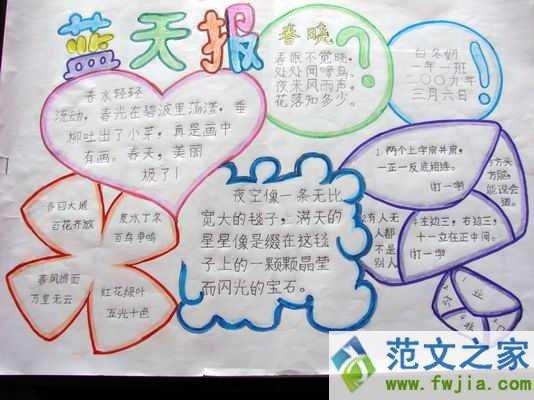 蓝天报
春晓
春眠不觉晓,
处处闻啼鸟。
夜来风雨声,
花落知多少。
?
白冬奶
二年二班
二〇〇九年
三月六日
!
春水轻轻
流动,春光在碧波里荡漾,垂
柳吐出了小芽,真是画中
有画。春天,美丽
极了!
春回大地
百花齐放
泉水丁冬
百鸟争鸣
春风拂面
万里无云
红花绿叶
五光十色
夜空像一条无比
宽大的毯子,满天的
星星像是缀在这毯
子上的一颗颗晶莹
而闪光的宝石。
1.两个土字肩并肩,
一正一反底相连。
(打一字)
方头
方脑,
能说会
道。
有人
人都
不是
别人
左边三,右边三,
十一立在正中间。
(打一字)
范文之家
www.fwjia.com